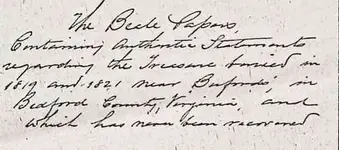 The Beale Papers,
Containing Authentic Statements
regarding the Treasure buried in
1819 and 1821 near Bufords, in
Bedford County, Virginia, and
which has never been recovered